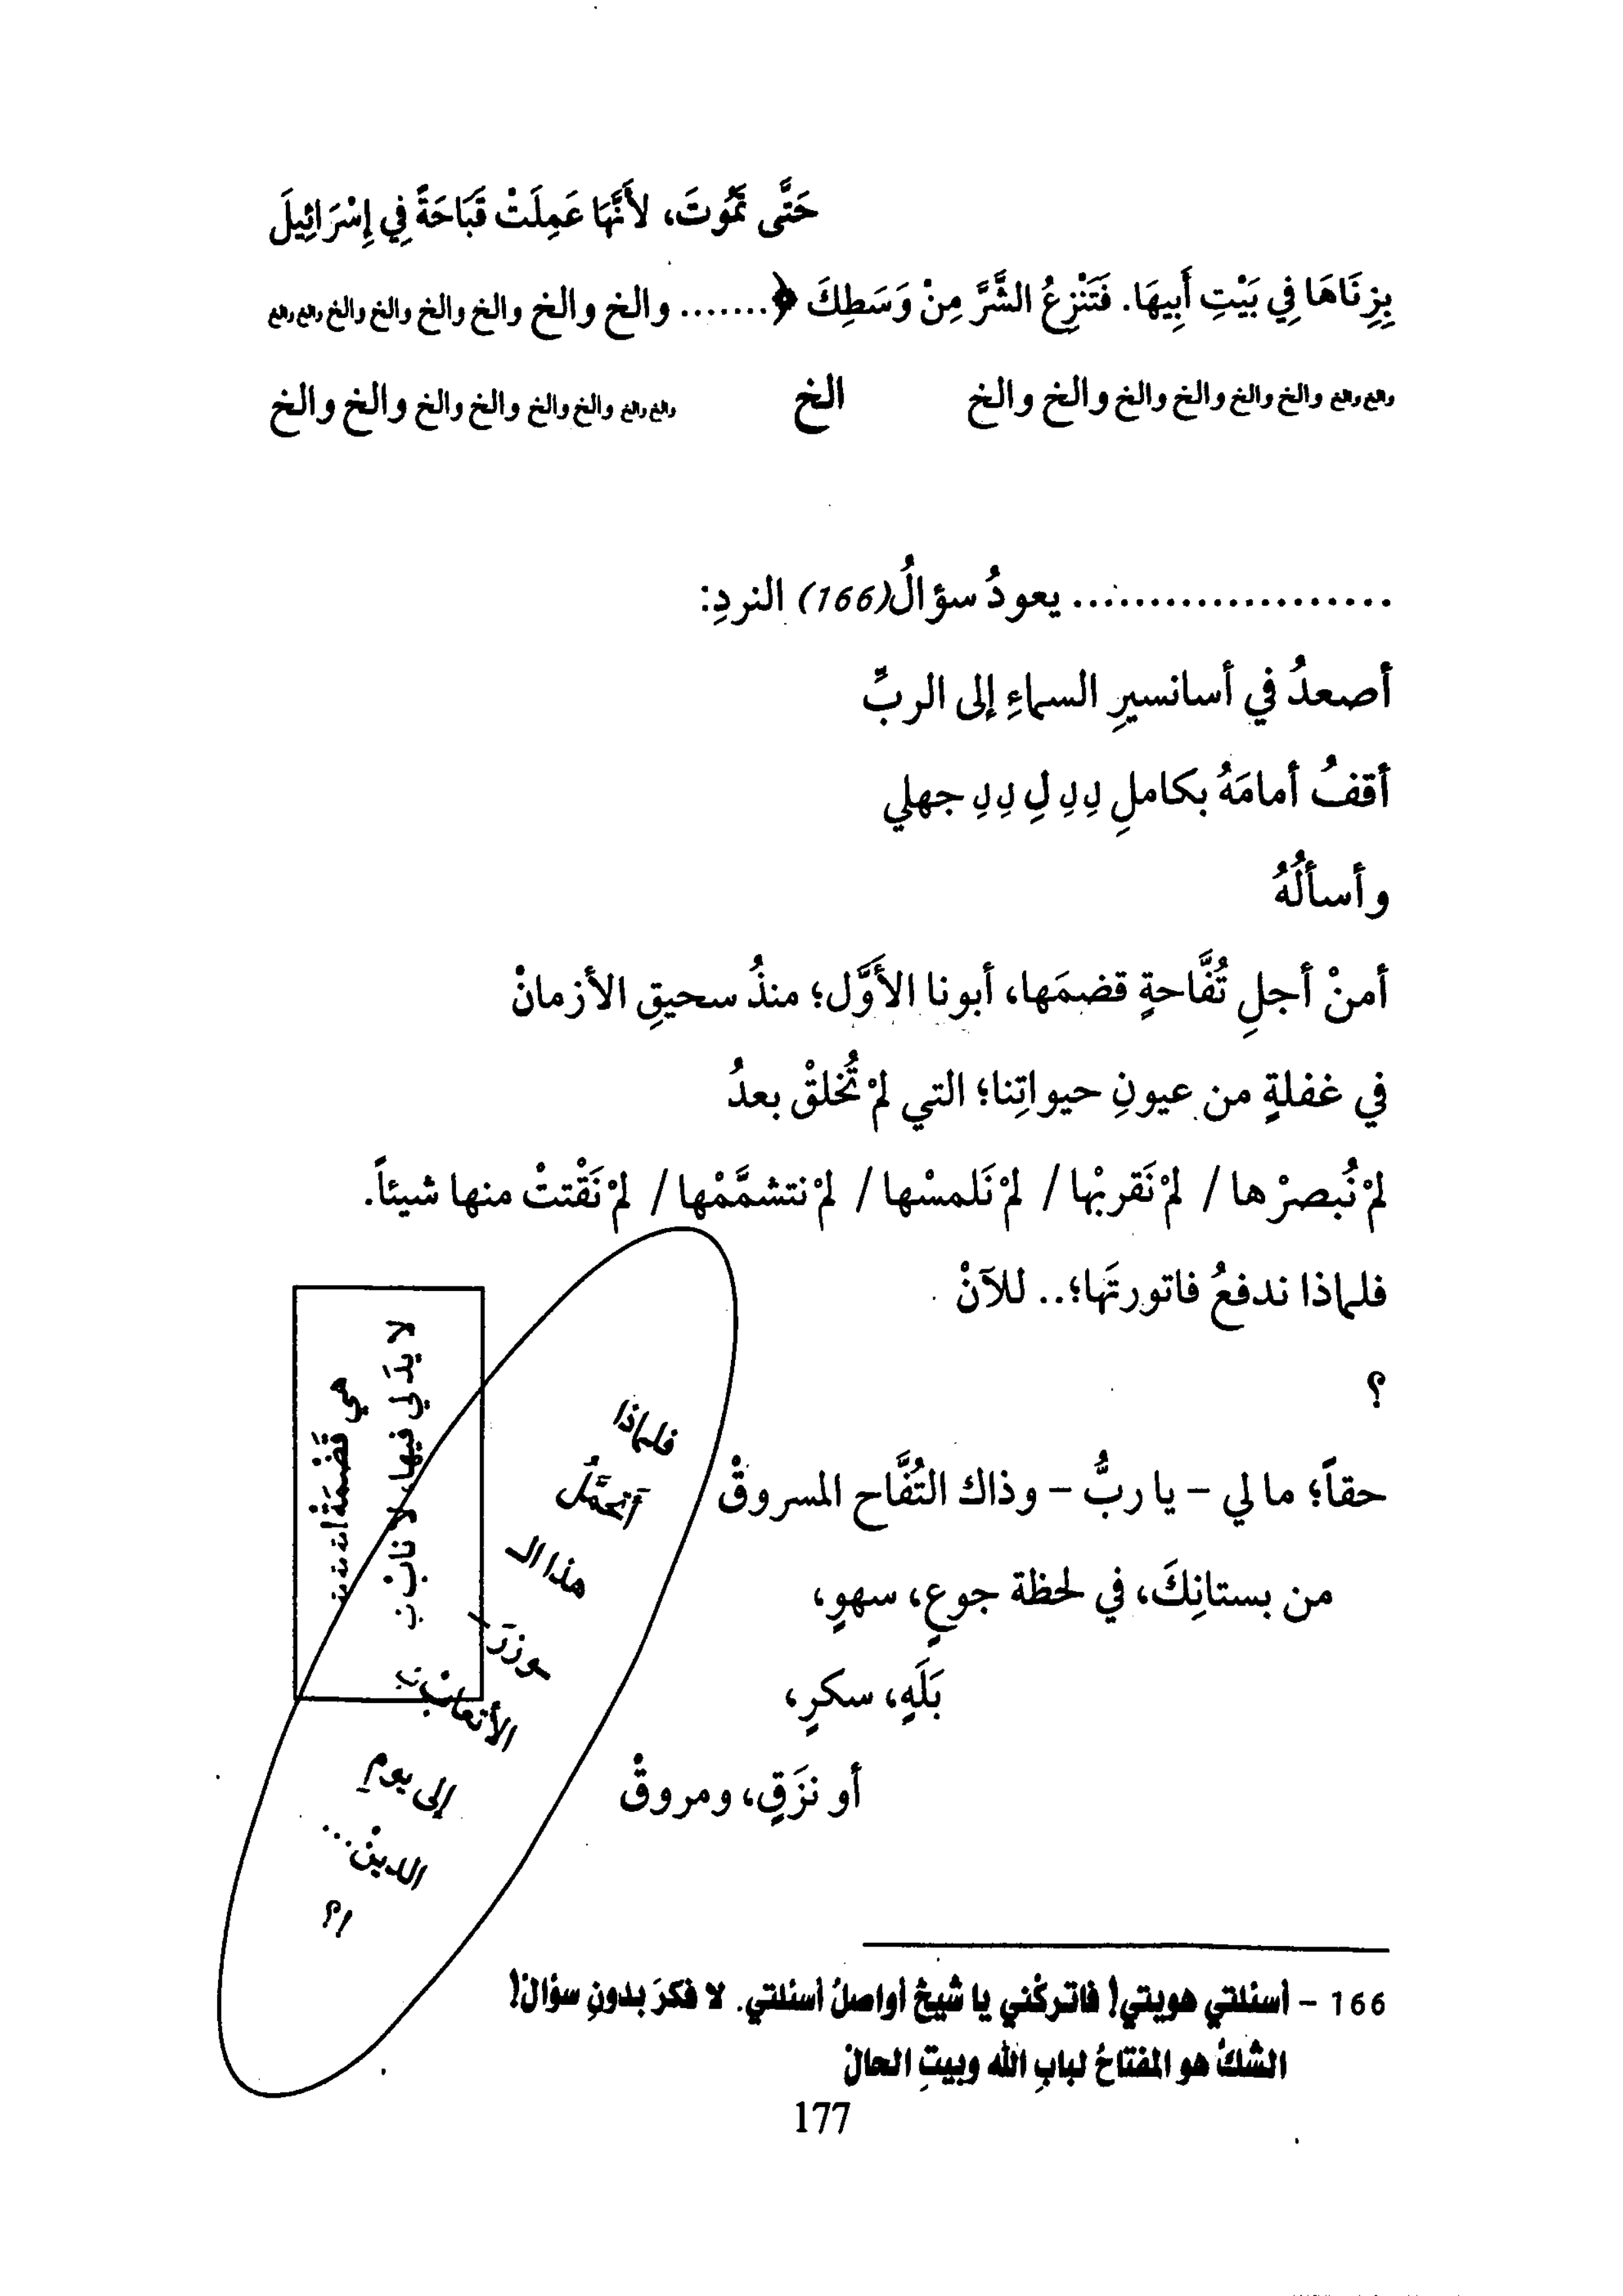 حَتَّى تَمُوتَ، لأَنَّهَا عَمِلَتْ قَبَاحَةً فِي إِسْرَائِيلَ
بِزِنَاهَا فِي بَيْتِ أَبِيهَا. فَتَنْزِعُ الشَّرَّ مِنْ وَسَطِكَ ﴾....... والخ والخ والخ والخ والخ والخ والخ والخ
والخ والخ والخ والخ والخ والخ والخ والخ الخ والخ والخ والخ والخ والخ والخ والخ والخ
..................... يعودُ سؤالُ(166) النردِ:
أصعدُ في أسانسيرِ السماءِ إلى الربِّ
أقفُ أمامَهُ بكاملِ لِلِ لِ لِلِ جهلي
وأسألُهُ
أمنْ أجلِ تُفَّاحةٍ قضمَها، أبونا الأوَّل؛ منذُ سحيقِ الأزمانْ
في غفلةٍ من عيونِ حيواتِنا؛ التي لمْ تُخلقْ بعدُ
لمْ نُبصرْها / لمْ نَقربْها / لمْ نَلمسْها / لمْ نتشمَّمْها / لمْ نَقْتتْ منها شيئاً.
فلماذا ندفعُ فاتورتَها؛.. للآنْ
؟
حقاً؛ ما لي – يا ربُّ – وذاك التُفَّاح المسروقْ
من بستانِكَ، في لحظة جوعٍ، سهوٍ،
بَلَهٍ، سكرٍ،
أو نَزَقٍ، ومروقْ
فلماذا
أتحمَّلُ
هذا الـ
ـوِزرَ /
الأتعابْ
إلى يومِ
الدينْ...
؟!
لا يدَ لي فيها، لا نابْ
هي قَضْمَةُ
166 – أسئلتي هويتي! فاتركْني يا شيخُ أواصلُ أسئلتي. لا فكرَ بدونِ سؤالْ!
الشكُّ هو المفتاحُ لبابِ الله وبيتِ الحالْ
177